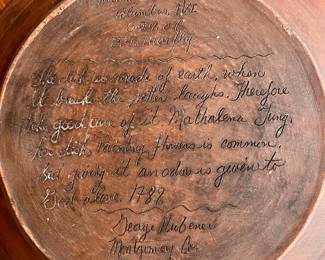 Columbus, N.J.
The dish is made of earth, when
it breaks the potter laughs, Therefore
take good care of it Mathalena Jung.
for dish, flowers is common,
But giving it an odor is given to
God alone. 1789
George Hubener
Montgomery Co.